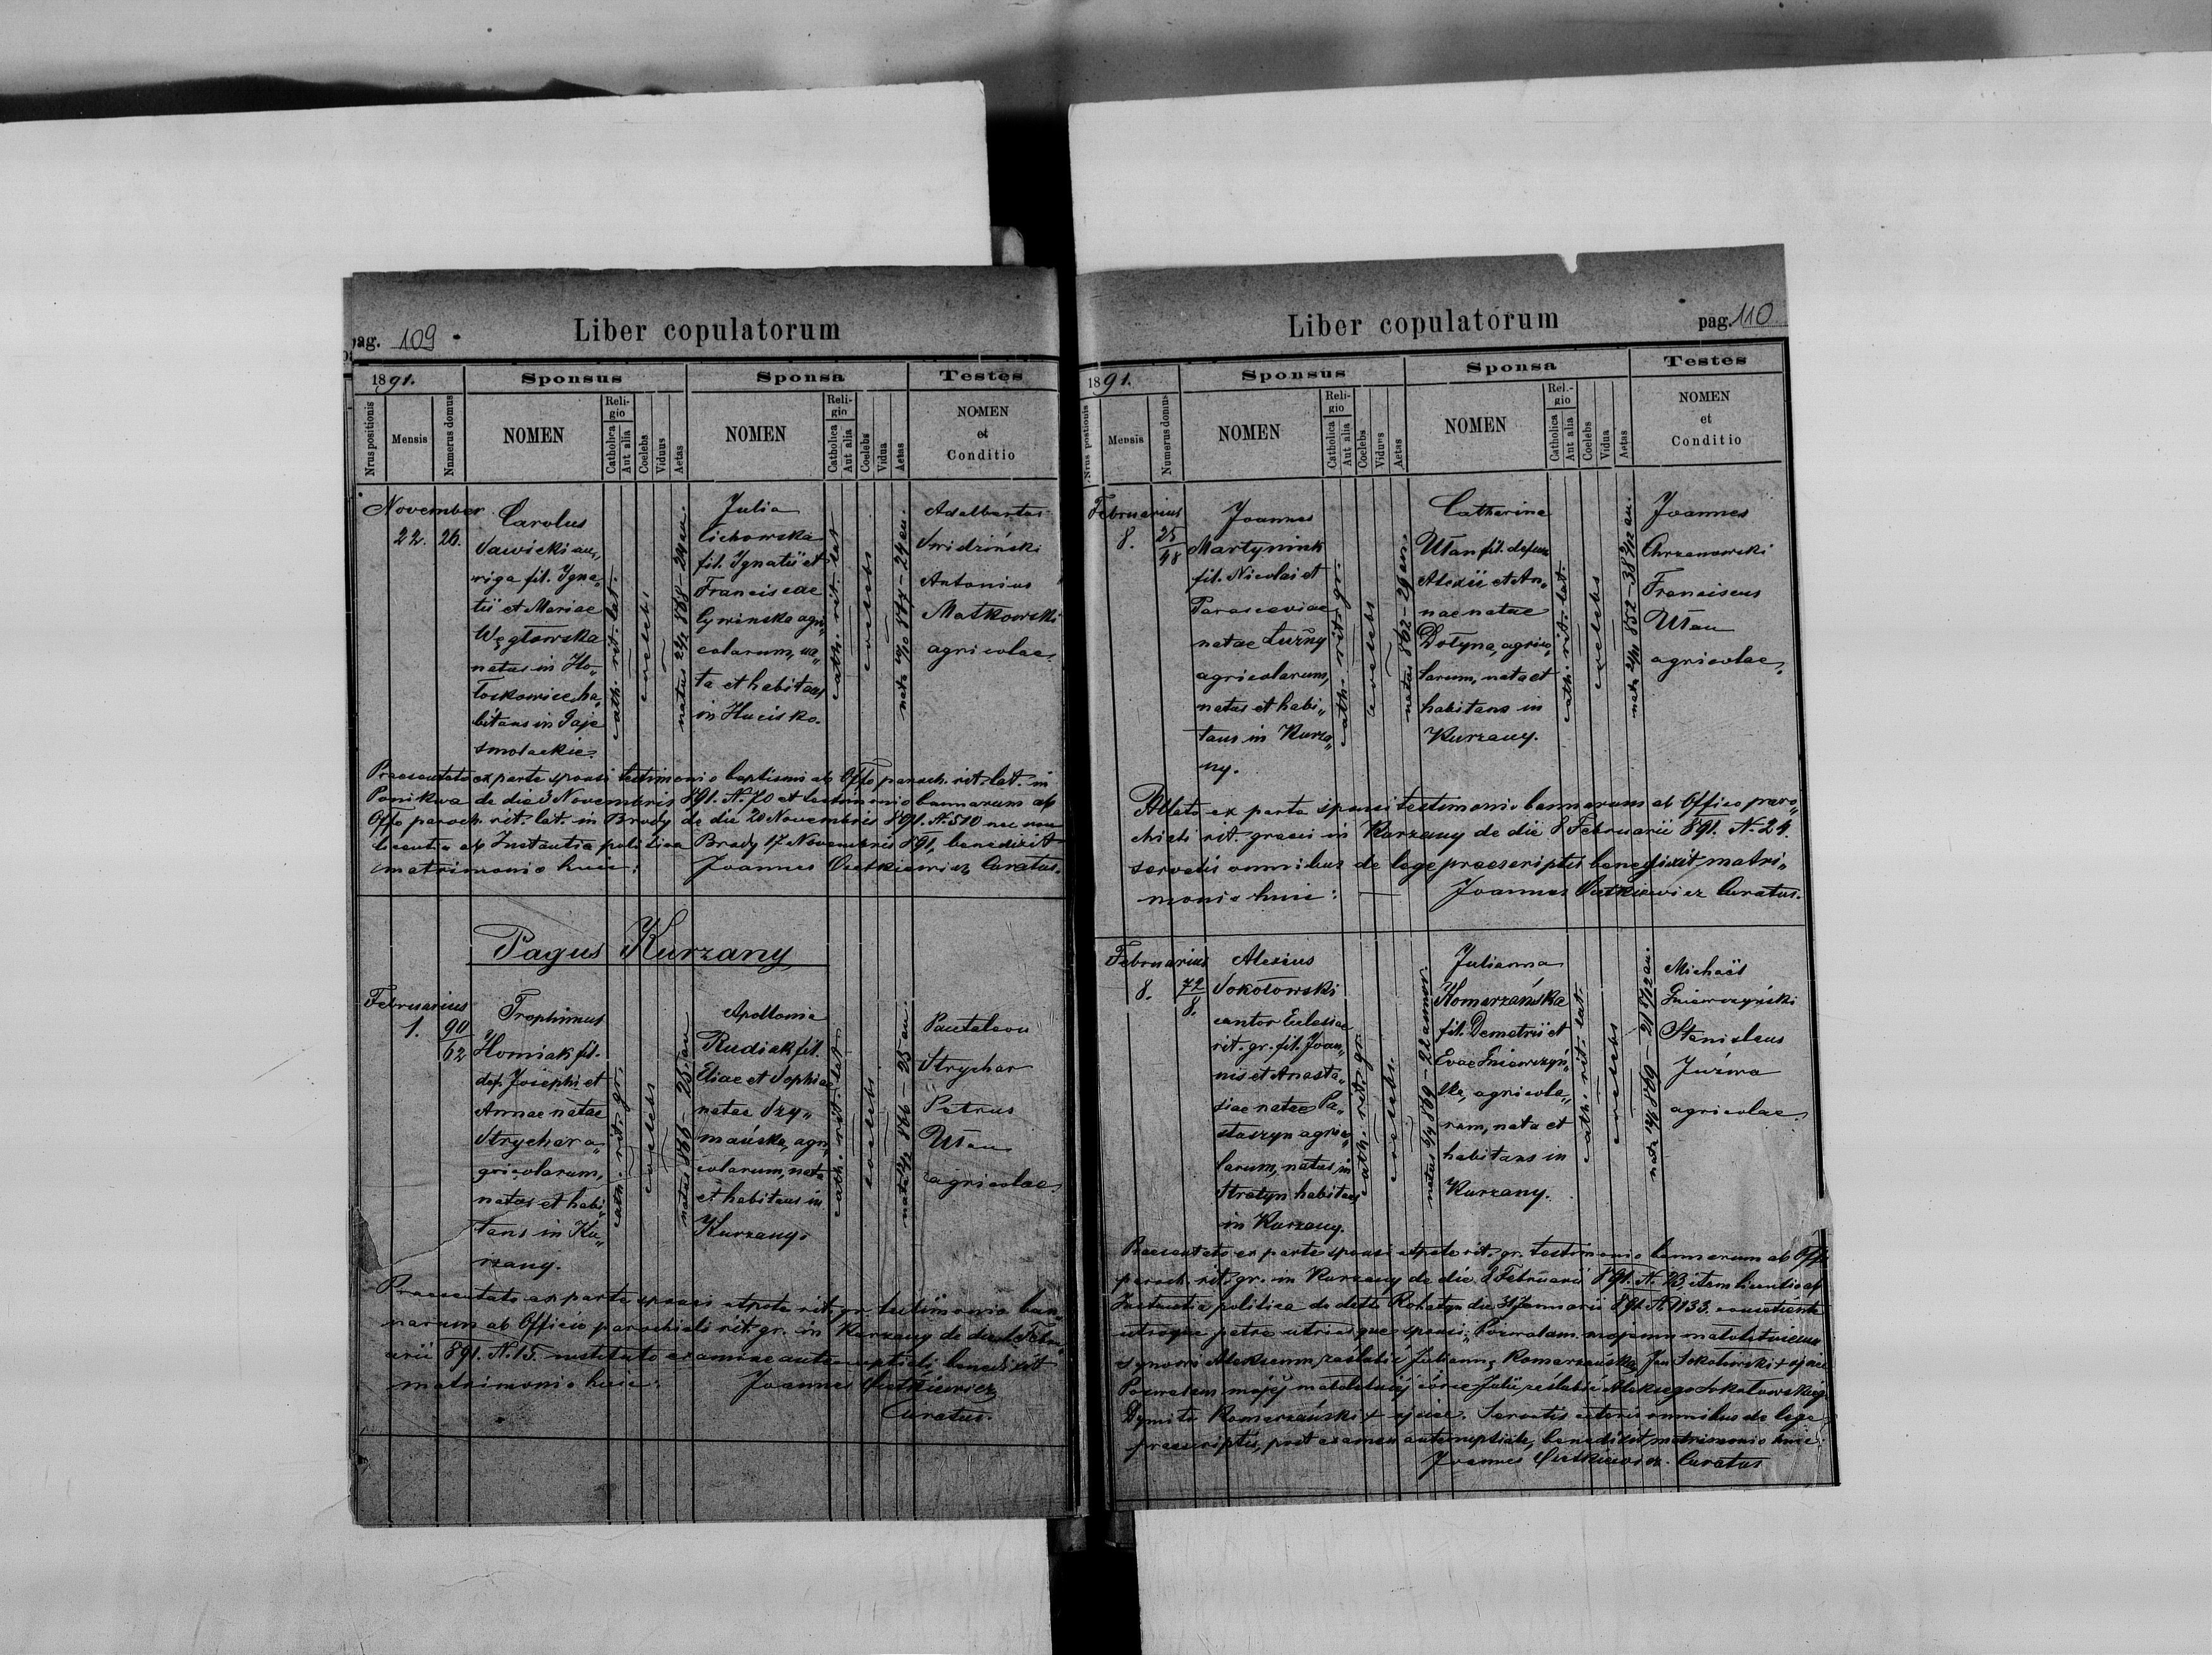 pag. 109
Liber copulatorum
1891.
Sponsus
Sponsa
Testes
Nrus positionis
Mensis
Numerus domus
NOMEN
Religio
Catholica
Aut alia
Coelebs
Viduus
Aetas
NOMEN
Religio
Catholica
Aut alia
Coelebs
Vidua
Aetas
NOMEN
et
Conditio
November
22. 26.
Carolus
Sawicki au„
riga fil. Igna„
tii et Mariae
Węglowska
natus in Ho„
łoskowice ha„
bitans in Gaje
Smolackie.
cath. rit. lat.
coelebs
Julia
Cichowska
fil. Ignatii et
Franciscae
Cywinska agri„
colarum, na„
ta et habitans
in Hucisko.
cath. rit. lat
coelebs
Adalbertus
Swidziński
Antonius
Matkowski
agricolae.
Praesentato ex parte sponsi testimonio baptismi ab Offo paroch. rit. lat. in
Ponikwa de die 3 Novembris 891. N. 70 et testimonio bannorum ab
Offo paroch. rit. lat. in Brody de die 20 Novembris 891. N. 510 nec non
licentia ab Instantia politica Brody 17 Novembris 891, benedixit
matrimonio huic: Joannes Curatus.
Pagus Kurzany
Februarius
1. 90
62
Trophimus
Homiak fil.
def. Josephi et
Annae natae
Strychar a„
gricolarum,
natus et habi„
tans in Ku„
rzany.
cath. rit. gr.
coelebs
natus 866 – 25 an
Apollonia
Rudiak fil.
Eliae et Sophiae
natae Szy„
mańska, agri„
colarum, nata
et habitans in
Kurzany.
cath. rit. lat
coelebs
Pantaleon
Strychar
Petrus
Ułan
agricolae.
Praesentato ex parte sponsi utpote rit. gr. testimonio ban„
norum ab Officio parochiali rit. gr. in Kurzany de die 1 Febru„
arii 891. N. 15. instituto examine antenuptiali benedixit
matrimonio huic: Joannes
Curatus.
Liber copulatorum
pag. 110
1891.
Sponsus
Sponsa
Testes
Nrus postionis
Mensis
Numerus domus
NOMEN
Religio
Catholica
Aut alia
Coelebs
Viduus
Aetas
NOMEN
Rel.-gio
Catholica
Aut alia
Coelebs
Vidua
Aetas
NOMEN
et
Conditio
Februarius
8. 25
48
Joannes
Martyniuk
fil. Nicolai et
Parasceviae
natae Łużny
agricolarum,
natus et habi„
tans in Kurza„
ny.
cath. rit. gr.
coelebs
natus 862 – 29 an.
Catharina
Ułan fil. defun
Alexii et An„
nae natae
Dołyna, agrico„
larum, nata et
habitans in
Kurzany.
cath. rit. lat.
coelebs
Joannes
Chrzanowski
Franciscus
Ułan
agricolae.
Allato ex parte sponsi testimonio bannorum ab Officio paro„
chiali rit. graeci in Kurzany de die 8 Februarii 891. N. 24.
servatis omnibus de lege praescriptis benedixit matri„
monio huic: Joannes Curatus.
Februarius
8. 72
8.
Alexius
Sokołowski
cantor Eclesiae
rit. gr. fil. Joan„
nis et Anasta„
siae natae Pa„
staszyn agrico„
larum, natus in
Stratyn habitans
in Kurzany.
cath. rit. gr.
coelebs.
Julianna
Komarzańska
fil. Demetrii et
Evae Gniewczyń„
ska, agricola„
rum, nata et
habitans in
Kurzany.
cath. rit. lat.
coelebs
Michaël
Gniewczyński
Stanislaus
Juźwa
agricolae.
Praesentato ex parte sponsi utpote rit. gr. testimonio bannorum ab Offo
paroch. rit. gr. in Kurzany de die 8 Februarii 891. N. 23, item licentia ab
Instantia politica de datto Rohatyn die 31 Januarii 891. N. 1133. consentiente
utroque patre utriusque sponsi: „Pozwalam mojemu małoletniemu
synowi Aleksemu zaślubić Juliannę Komarzańską Jan Sokołowski + ojciec
Pozwalam mojéj małoletniéj córce Julii zaślubić Aleksego Sokołowskiego
Dymitr Komarzański + ojciec. Servatis ceteris omnibus de lege
praescriptis, post examen antenuptiale, benedixit matrimonio huic
Joannes Curatus